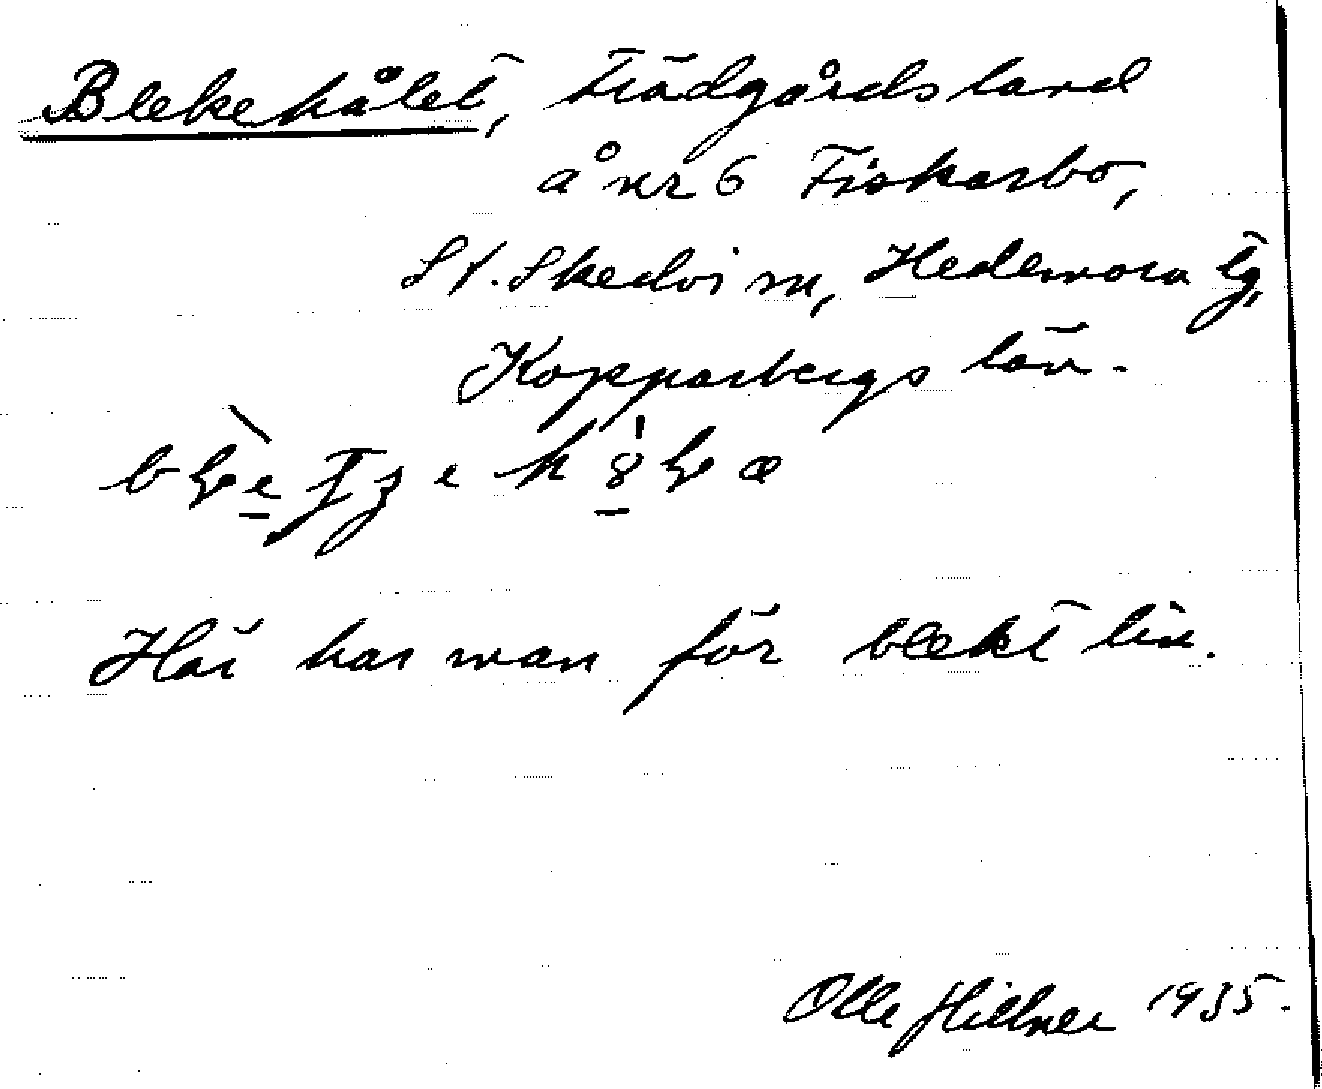 Blekehålet, Trädgårdsland
å nr 6 Fiskarbo,
St. Skedvi sn, Hedemora tg,
Kopparbergs län.
Här har man för blekt lin.
Olle Hillner 1935.